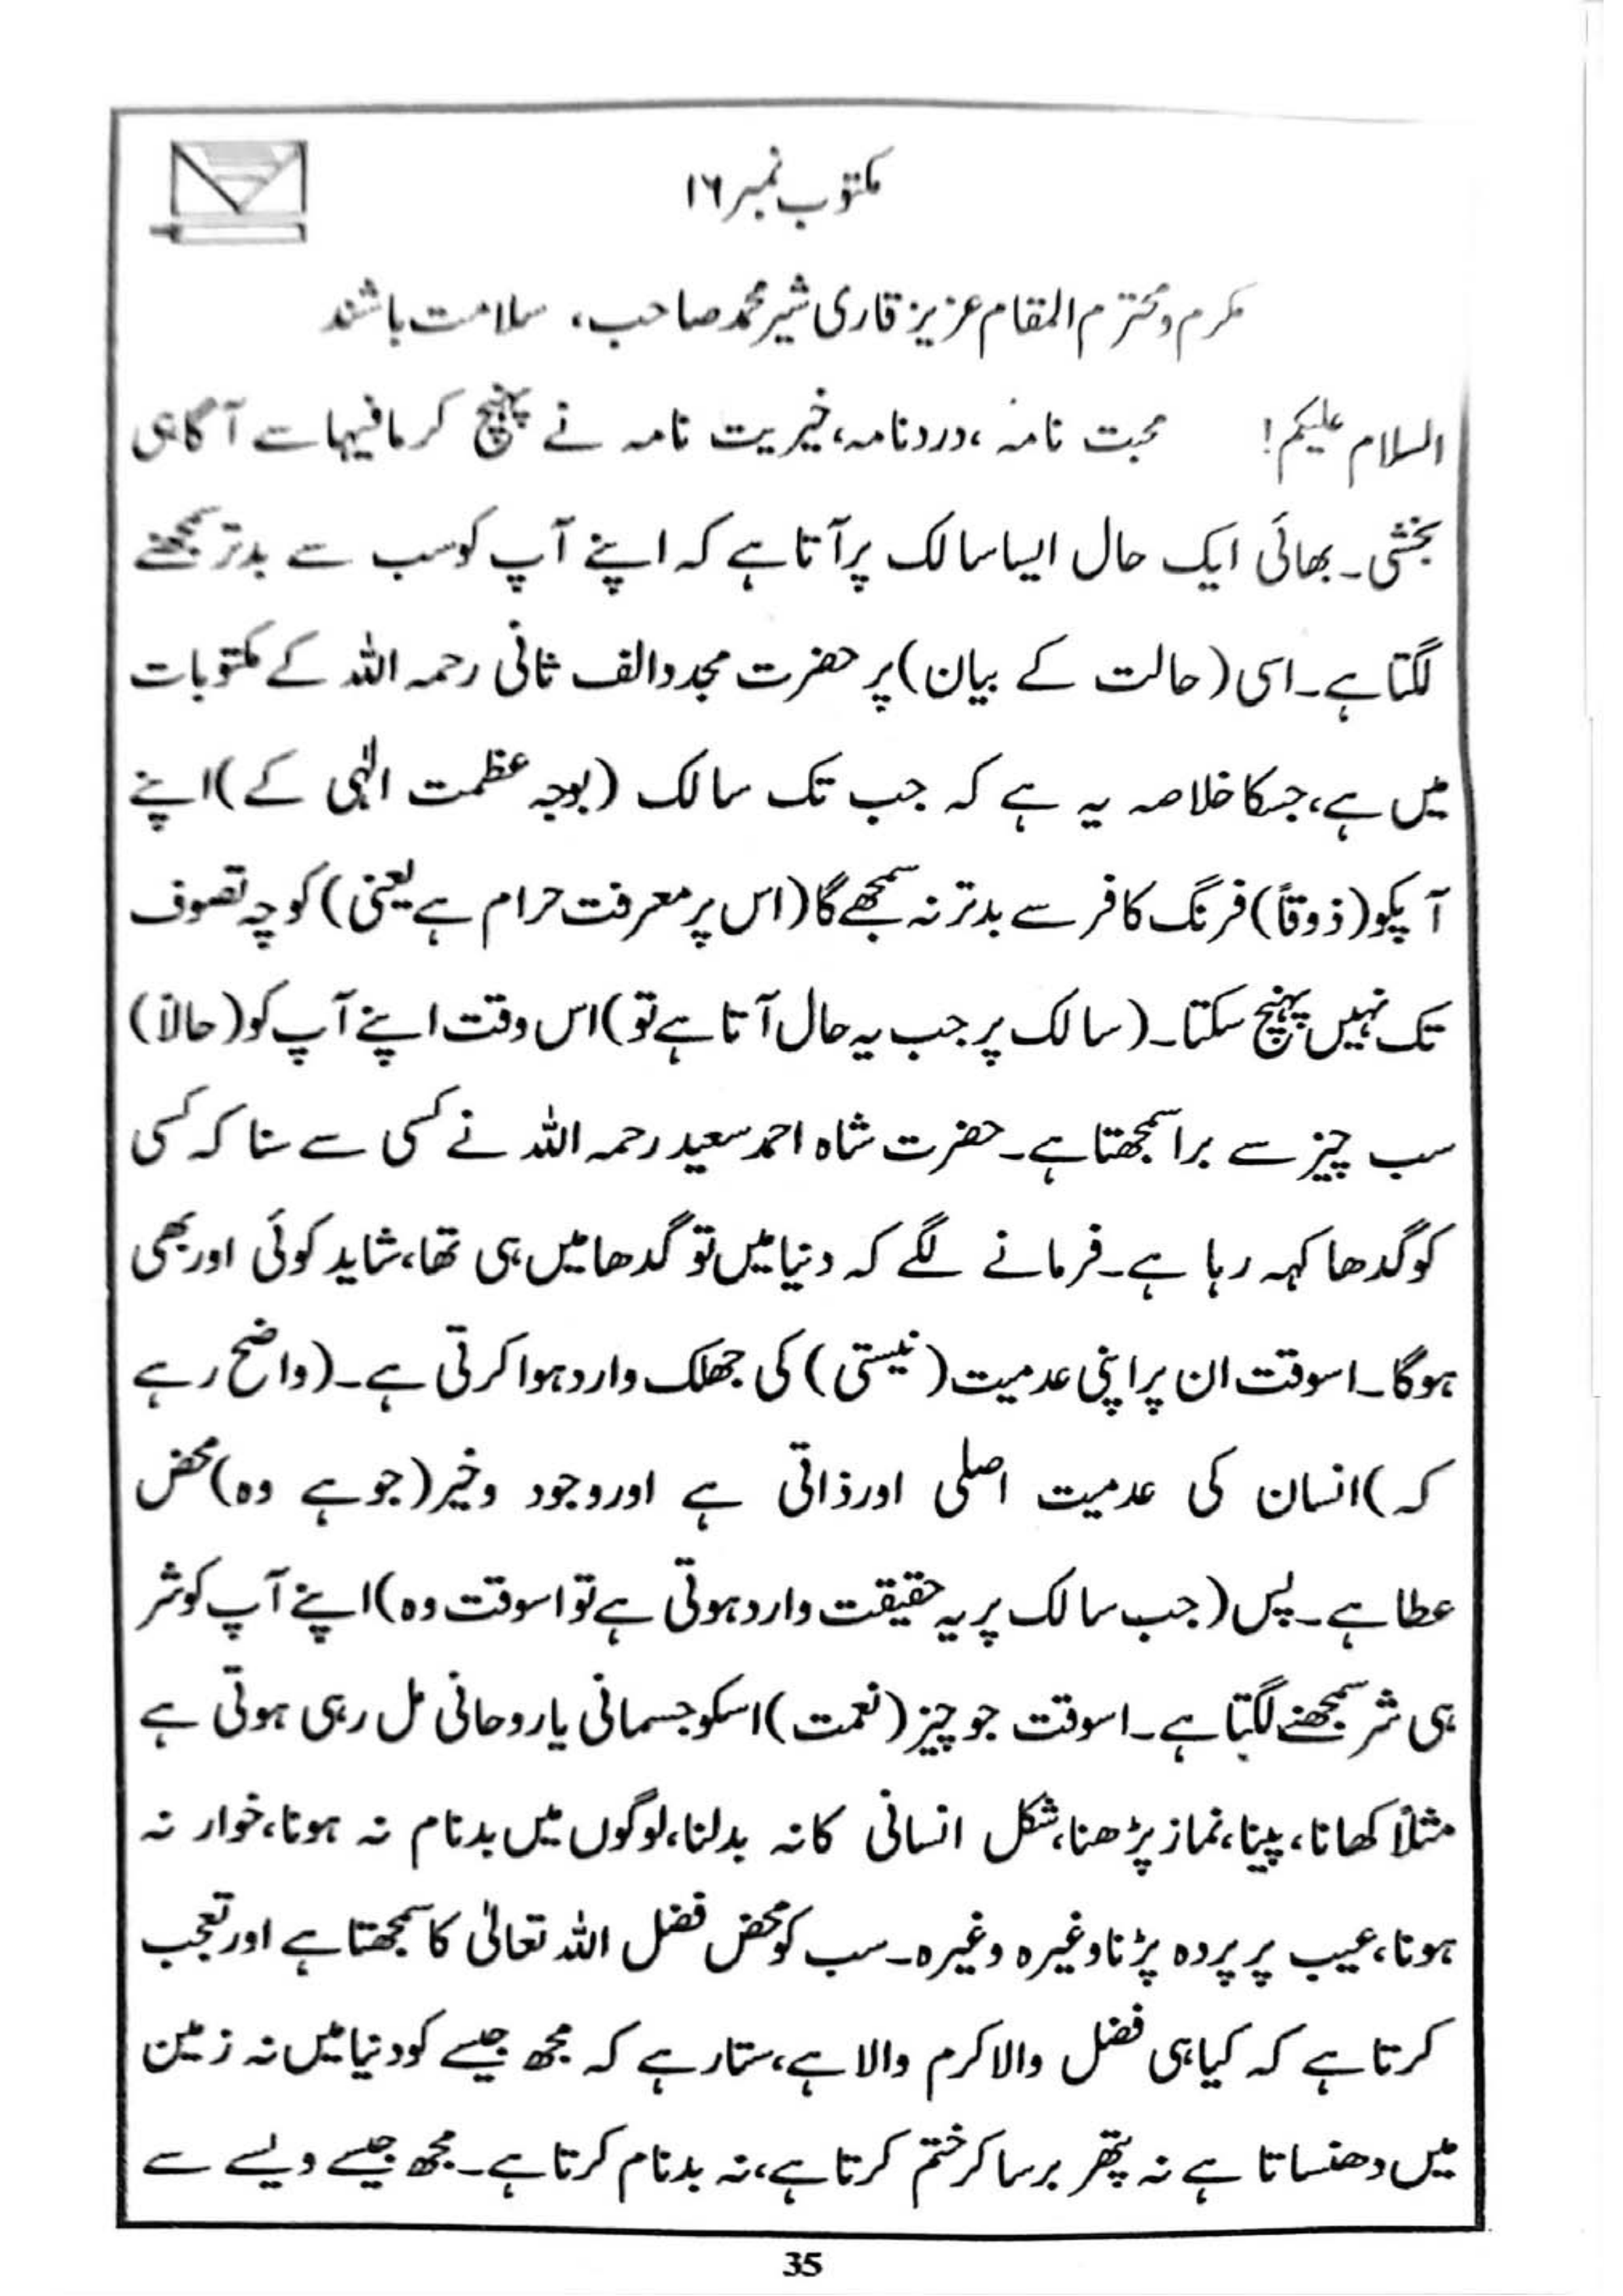 مکتوب نمبر ۱۶
مکرم و محترم المقام عزیز قاری شیر محمد صاحب، سلامت باشند
السلام علیکم! محبت نامہ، درد نامہ، خیریت نامہ نے پہنچ کر مافیہا سے آگاہی
بخشی۔ بھائی ایک حال ایسا سالک پر آتا ہے کہ اپنے آپ کو سب سے بدتر سمجھنے
لگتا ہے۔ اسی (حالت کے بیان) پر حضرت مجدد الف ثانی رحمہ اللہ کے مکتوبات
میں ہے، جسکا خلاصہ یہ ہے کہ جب تک سالک (بوجہ عظمت الٰہی کے) اپنے
آپکو (ذوقاً) فرنگ کافر سے بدتر نہ سمجھے گا (اس پر معرفت حرام ہے یعنی) کوچہ تصوف
تک نہیں پہنچ سکتا۔ (سالک پر جب یہ حال آتا ہے تو) اس وقت اپنے آپ کو (حالاً)
سب چیز سے برا سمجھتا ہے۔ حضرت شاہ احمد سعید رحمہ اللہ نے کسی سے سنا کہ کسی
کو گدھا کہہ رہا ہے۔ فرمانے لگے کہ دنیا میں تو گدھا میں ہی تھا، شاید کوئی اور بھی
ہوگا۔ اسوقت ان پر اپنی عدمیت (نیستی) کی جھلک وارد ہوا کرتی ہے۔ (واضح رہے
کہ) انسان کی عدمیت اصلی اور ذاتی ہے اور وجود و خیر (جو ہے وہ) محض
عطا ہے۔ پس (جب سالک پر یہ حقیقت وارد ہوتی ہے تو اسوقت وہ) اپنے آپ کو شر
ہی شر سمجھنے لگتا ہے۔ اسوقت جو چیز (نعمت) اسکو جسمانی یا روحانی مل رہی ہوتی ہے
مثلاً کھانا، پینا، نماز پڑھنا، شکل انسانی کا نہ بدلنا، لوگوں میں بدنام نہ ہونا، خوار نہ
ہونا، عیب پر پردہ پڑنا وغیرہ وغیرہ۔ سب کو محض فضل اللہ تعالیٰ کا سمجھتا ہے اور تعجب
کرتا ہے کہ کیا ہی فضل والا کرم والا ہے، ستار ہے کہ مجھ جیسے کو دنیا میں نہ زمین
میں دھنساتا ہے نہ پتھر برسا کر ختم کرتا ہے، نہ بدنام کرتا ہے۔ مجھ جیسے ویسے سے
35